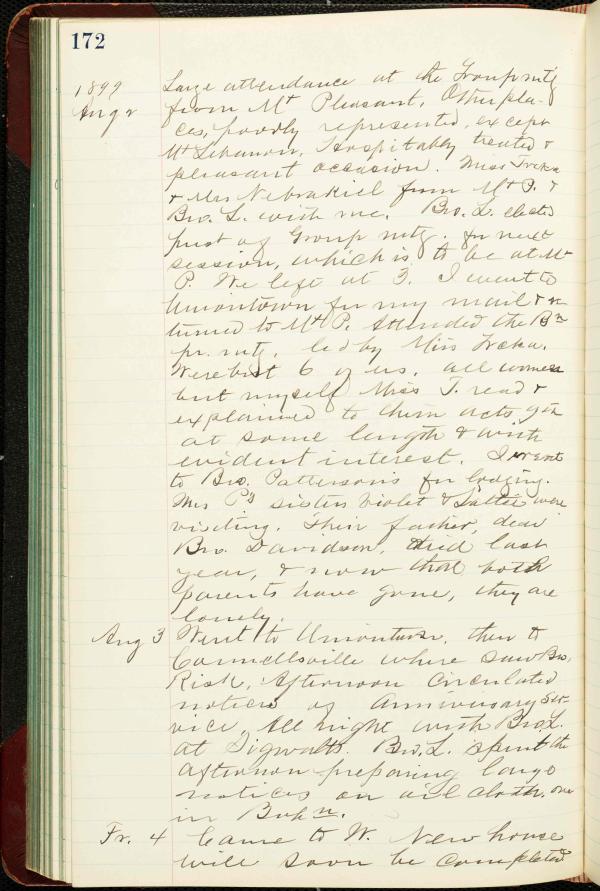 172
1899 Large attendance at the Group mtg
Aug 2 from Mt Pleasant, Other pla-
ces, poorly represented, except
Mt Lebanon. Hospitably treated &
pleasant occasion. Miss
& Mrs from Mt P. &
Bro. L. with me. Bro. L. elected
prest of Group mtg. for next
session, which is to be at Mt
P. We left at 3. I went to
Uniontown for my mail & re-
turned to Mt P. Attended the Bn
pr. mtg. led by Miss
Were but 6 of us, all women
but myself Miss T. read &
explained to them acts 9th
at some length & with
evident interest. I went
to Bro. Patterson's for lodging.
Mrs P's sisters Violet & were
visiting. Their father, dear
Bro. Davidson, died last
year, & now that both
parents have gone, they are
lonely.
Aug 3 Went to Uniontown, then to
Connellsville where saw Bro.
Risk. Afternoon circulated
notices of anniversary ser-
vice. All night with Bro. L.
at Bro. L. spent the
afternoon preparing large
notices on oil cloth, one
in Bohn.
Fr. 4 Came to W. New house
will soon be completed